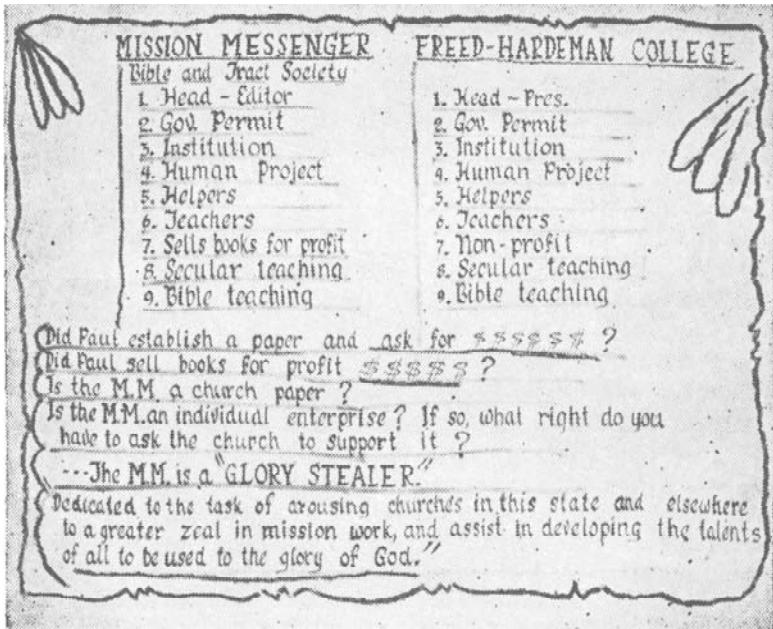 MISSION MESSENGER
Bible and Tract Society
1. Head - Editor
2. Gov. Permit
3. Institution
4. Human Project
5. Helpers
6. Teachers
7. Sells books for profit
8. Secular teaching
9. Bible teaching
FREED-HARDEMAN COLLEGE
1. Head - Pres.
2. Gov. Permit
3. Institution
4. Human Project
5. Helpers
6. Teachers
7. Non-profit
8. Secular teaching
9. Bible teaching
Did Paul establish a paper and ask for $$$$$$ ?
Did Paul sell books for profit $$$$$ ?
Is the M.M. a church paper ?
Is the M.M. an individual enterprise ? If so, what right do you
have to ask the church to support it ?
---The M.M. is a "GLORY STEALER."
Dedicated to the task of arousing churches in this state and elsewhere
to a greater zeal in mission work, and assist in developing the talents
of all to be used to the glory of God."